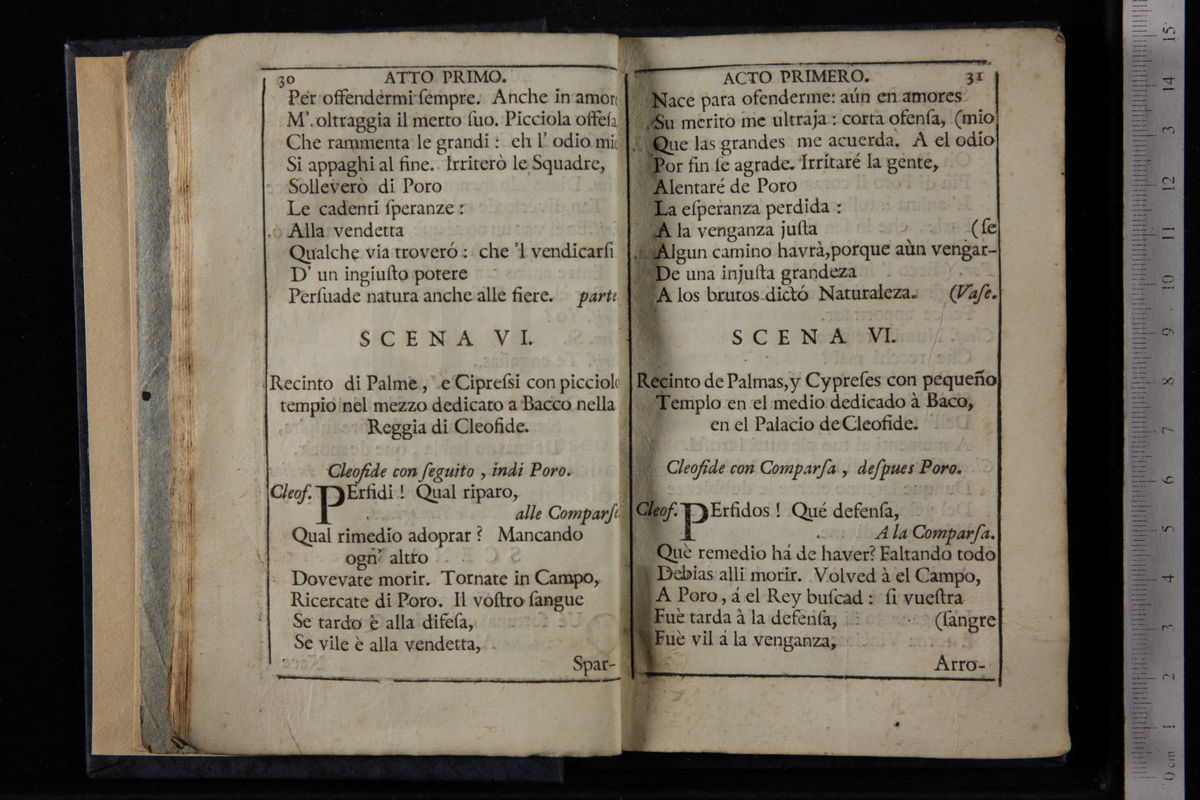 30 ATTO PRIMO.
Per offendermi ſempre. Anche in amore
M'. oltraggia il merto ſuo. Picciola offeſa
Che rammenta le grandi : eh l' odio mio
Si appaghi al fine. Irriterò le Squadre,
Solleverò di Poro
Le cadenti ſperanze :
Alla vendetta
Qualche via troveró : che 'l vendicarſi
D' un ingiuſto potere
Perſuade natura anche alle fiere. parte
SCENA VI.
Recinto di Palme , e Cipreſsi con picciolo
tempio nel mezzo dedicato a Bacco nella
Reggia di Cleofide.
Cleofide con ſeguito , indi Poro.
Cleof. PErfidi ! Qual riparo,
alle Comparſe
Qual rimedio adoprar ? Mancando
ogn' altro
Dovevate morir. Tornate in Campo,
Ricercate di Poro. Il voſtro ſangue
Se tardo è alla difeſa,
Se vile è alla vendetta,
Spar-
ACTO PRIMERO. 31
Nace para ofenderme: aún en amores
Su merito me ultraja : corta ofenſa, (mio
Que las grandes me acuerda. A el odio
Por fin ſe agrade. Irritaré la gente,
Alentaré de Poro
La eſperanza perdida :
A la venganza juſta (ſe
Algun camino havrà,porque aùn vengar-
De una injuſta grandeza
A los brutos dictó Naturaleza. (Vaſe.
SCENA VI.
Recinto de Palmas,y Cypreſes con pequeño
Templo en el medio dedicado à Baco,
en el Palacio de Cleofide.
Cleofide con Comparſa , deſpues Poro.
Cleof. PErfidos ! Qué defenſa,
A la Comparſa.
Què remedio há de haver? Faltando todo
Debias alli morir. Volved à el Campo,
A Poro , á el Rey buſcad : ſi vueſtra
Fuè tarda à la defenſa, (ſangre
Fuè vil á la venganza,
Arro-